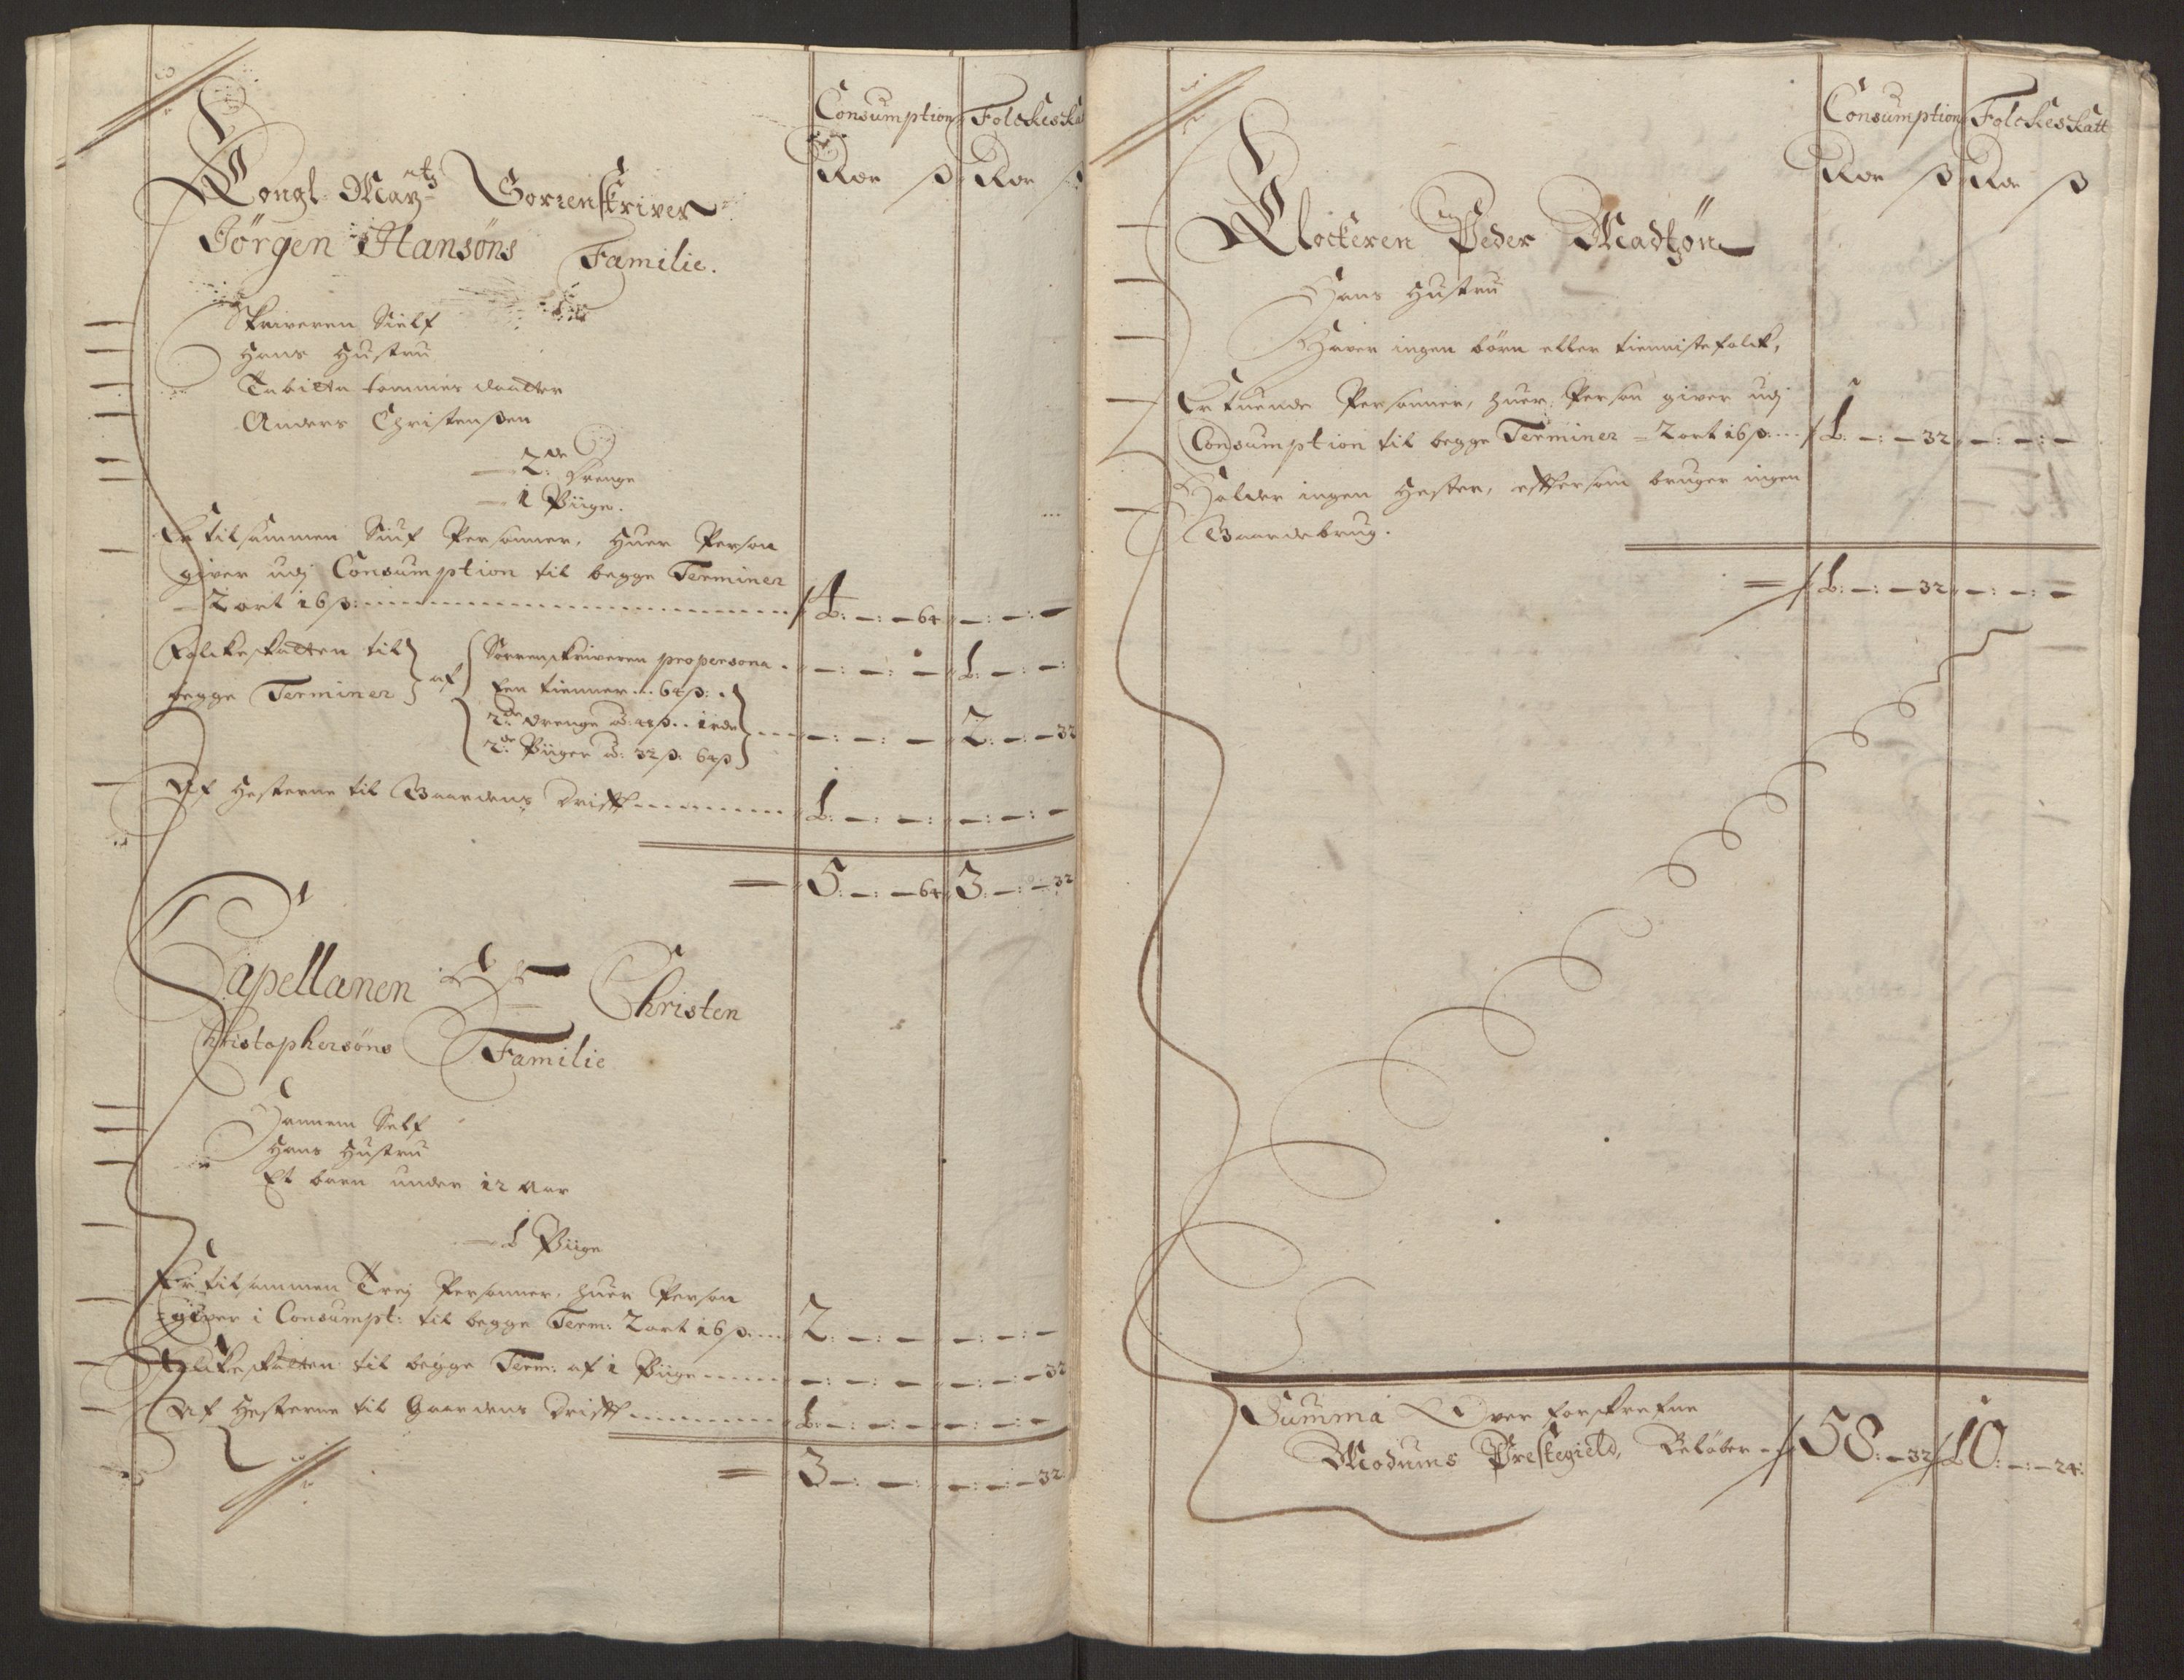 Consumption Folckeskat
Rdr ß Rdr ß
Kongl: Mayts Sorrenskriver
Jörgen Hansöns Familie.
Skriveren Sielf
Hans Hustru
Tabitta tommes daatter
Anders Christenßen
2de Drenge
1 Piige.
Er tilsammen Siuf Personner, Huer Person
giver udj Consumption til begge Terminer
2 ort 16 ß: 4: —: — 64 —: —: —
Folckeskatten til begge Terminer af
Sorrenskriveren pro persona —: —: — 1: —: —:
Een tienner... 64 ß:
2de Drenge a: 48 ß.. 1 rdr —: —: — 2: —: — 32
2de Piiger a: 32 ß: 64 ß
Af Hesterne til Gaardens Drifft 1: —: —: —: —: —
5: —: — 64 3: —: — 32
Capellanen Hr Christen
Christophersöns Familie
Hannem Self
Hans Hustru
Et barn under 12 Aar
1 Piige
Er tilsammen Trej Personner, huer Person
giver i Consumpt: til begge Term: 2 ort 16 ß: 2: —: — —: —: —
Folckeskatten til begge Term: af 1 Piige —: —: — —: —: — 32
Af Hesterne til Gaardens Drifft 1: —: —: —: —: —
3 —: —: —: —: — 32
Consumption Folckeskatt
Rdr ß Rdr ß
Klockeren Peder Madtzön
Hans Hustru
Haver ingen börn eller tiennistefolck,
Er tuende Personner, huer Person giver udj
Consumption til begge Terminer = 2 ort 16 ß: 1: —: — 32 —: —: —
Holder ingen Hester, effterson bruger ingen
Gaardebrug.
1: —: — 32 —: —: —
Summa Over forskrefne
Modums Prestegield, Beløber 58: — 32 10: —: — 24: